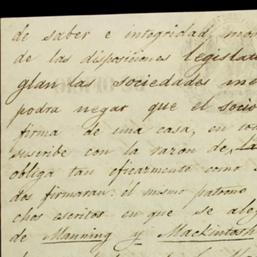 de saber e integridad, mos
de las disposiciones legislati
glan las sociedades mer
podra negar que el socio
firma de una casa, en con
suscribe con la razon de La
obliga tan eficazmente como
dos firmaran: el mismo patrono
chos escritos en que se ale
de Manning y Mackintosh